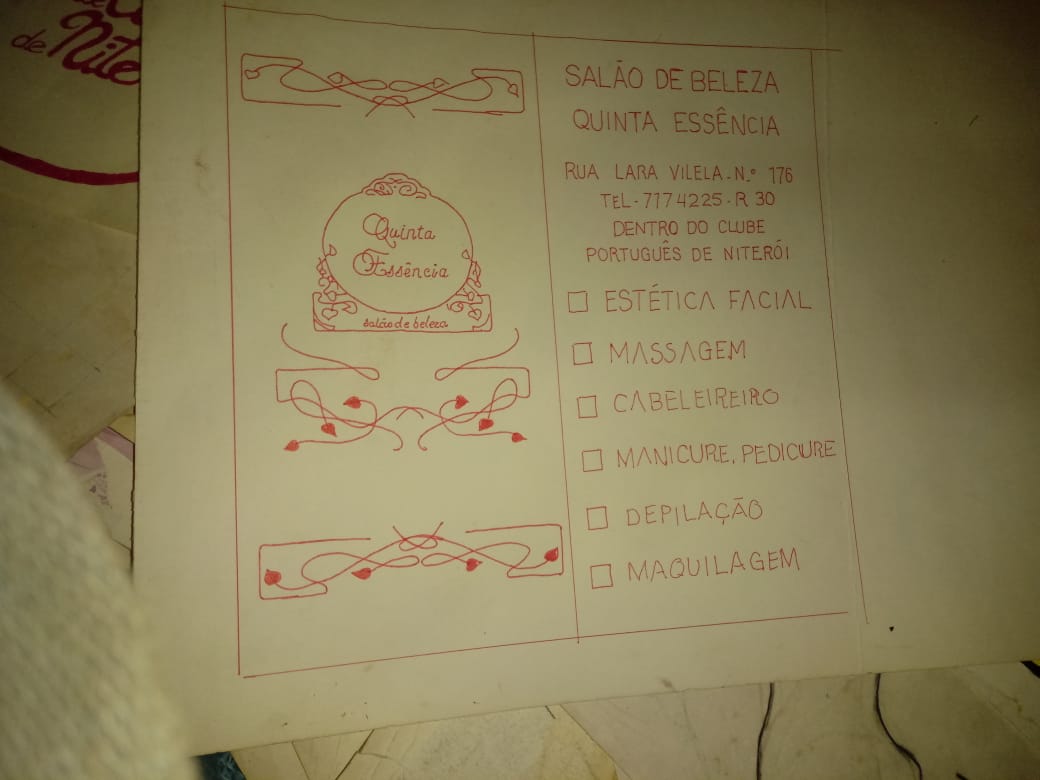 de
Nite
Quinta
Essência
salão de beleza
SALÃO DE BELEZA
QUINTA ESSÊNCIA
RUA LARA VILELA - N.º 176
TEL - 717 4225 - R 30
DENTRO DO CLUBE
PORTUGUÊS DE NITERÓI
ESTÉTICA FACIAL
MASSAGEM
CABELEIREIRO
MANICURE, PEDICURE
DEPILAÇÃO
MAQUILAGEM